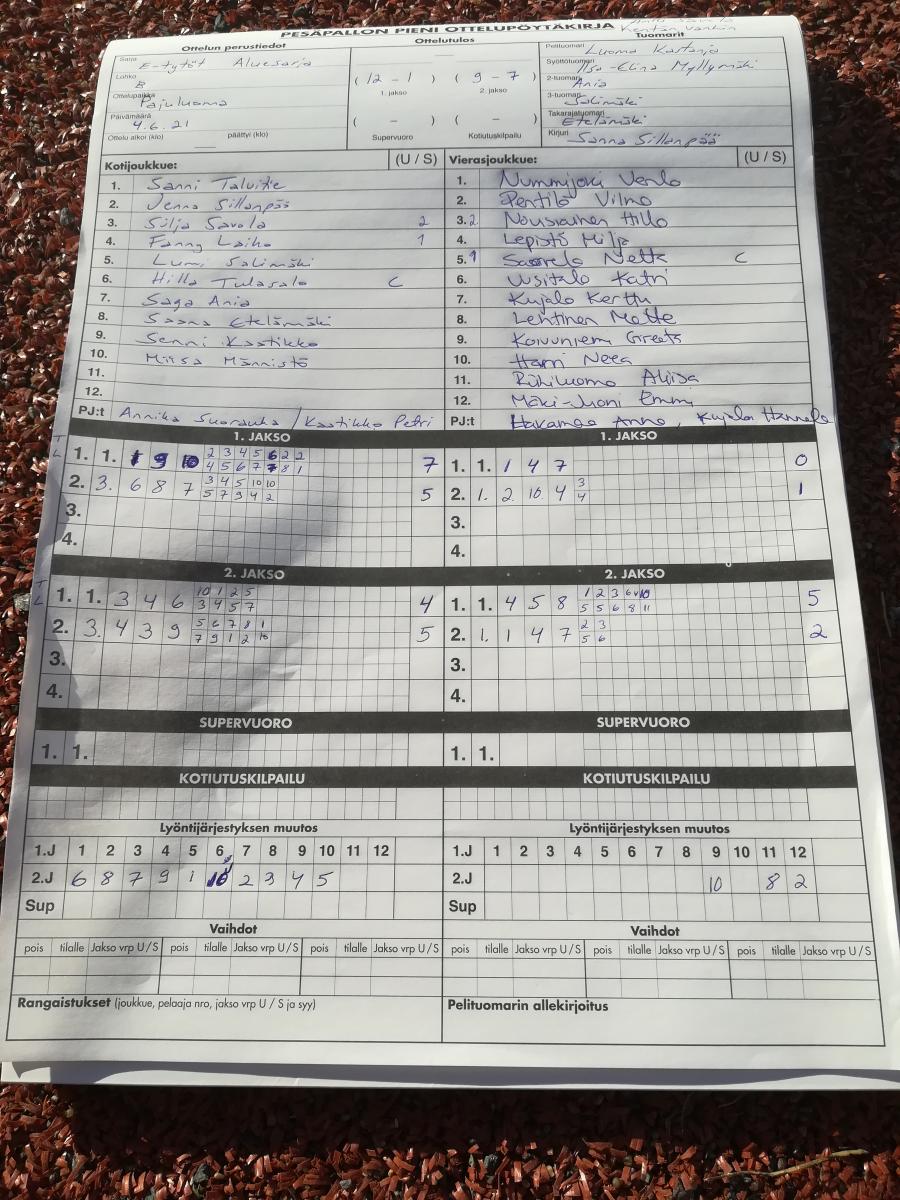 PESÄPALLON PIENI OTTELUPÖYTÄKIRJA
Ottelun perustiedot
Sarja E-tytöt Aluesarja
Lohko B
Ottelupaikka Pajuluoma
Päivämäärä 4.6.21
Ottelu alkoi (klo) päättyi (klo)
Ottelutulos
( 12 - 1 ) ( 9 - 7 )
1. jakso 2. jakso
( - ) ( - )
Supervuoro Kotiutuskilpailu
Tuomarit
Pelituomari Luoma Kastanja
Syöttötuomari Ilsa-Elina Myllymäki
2-tuomari Ania
3-tuomari Salimäki
Takarajatuomari Etelämäki
Kirjuri Sanna Sillanpää
Kotijoukkue: (U / S)
1. Sanni Talvitie
2. Jenna Sillanpää
3. Silja Savola 2
4. Fanny Laiho 1
5. Lumi Salimäki
6. Hilla Tulasalo C
7. Saga Ania
8. Saana Etelämäki
9. Senni Kastikko
10. Miisa Männistö
11.
12.
PJ:t Annika Suorauha / Kastikko Petri
Vierasjoukkue: (U / S)
1. Nummijoki Venla
2. Penttilä Vilma
3. 2 Nousiainen Hilla
4. Lepistö Milja
5. 1 Saarela Netta C
6. Uusitalo Katri
7. Kujala Kerttu
8. Lehtinen Mette
9. Koivuniemi Greeta
10. Harri Neea
11. Riihiluoma Aliisa
12. Mäki-Juoni Emmi
PJ:t Hakamaa Anne, Kujala Hannele
1. JAKSO
T 1. 1. 1 9 10 2 3 4 5 6 2 2 7
L 4 5 6 7 7 8 1
2. 3. 6 8 7 3 4 5 10 10 5
5 7 9 4 2
3.
4.
1. JAKSO
1. 1. 1 4 7 0
2. 1. 2 10 4 3 1
4
3.
4.
2. JAKSO
T 1. 1. 3 4 6 10 1 2 5 4
L 3 4 5 7
2. 3. 4 3 9 5 6 7 8 1 5
7 9 1 2 10
3.
4.
2. JAKSO
1. 1. 4 5 8 1 2 3 6 10 5
5 5 6 8 11
2. 1. 1 4 7 2 3 2
5 6
3.
4.
SUPERVUORO
1. 1.
SUPERVUORO
1. 1.
KOTIUTUSKILPAILU
KOTIUTUSKILPAILU
Lyöntijärjestyksen muutos
1.J 1 2 3 4 5 6 7 8 9 10 11 12
2.J 6 8 7 9 1 10 2 3 4 5
Sup
Lyöntijärjestyksen muutos
1.J 1 2 3 4 5 6 7 8 9 10 11 12
2.J 10 8 2
Sup
Vaihdot
pois tilalle Jakso vrp U / S pois tilalle Jakso vrp U / S pois tilalle Jakso vrp U / S
Vaihdot
pois tilalle Jakso vrp U / S pois tilalle Jakso vrp U / S pois tilalle Jakso vrp U / S
Rangaistukset (joukkue, pelaaja nro, jakso vrp U / S ja syy)
Pelituomarin allekirjoitus